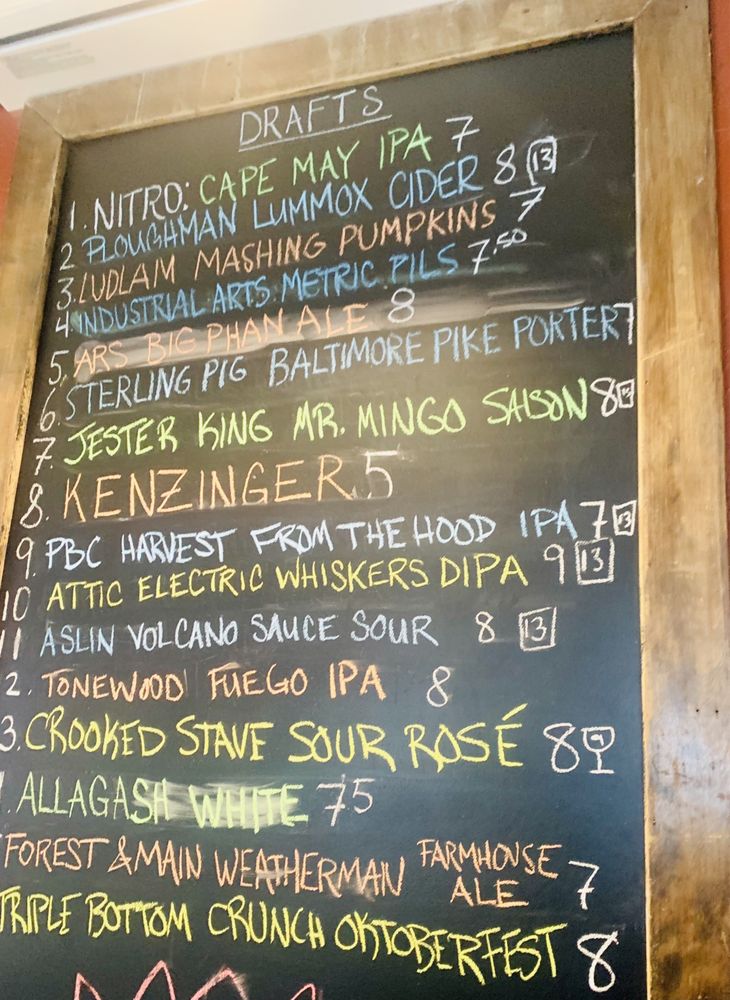 DRAFTS
1. NITRO: CAPE MAY IPA 7
2 PLOUGHMAN LUMMOX CIDER 8 13
3. LUDLAM MASHING PUMPKINS 7
4 INDUSTRIAL ARTS METRIC PILS 7.50
5. ARS BIG PHAN ALE 8
6. STERLING PIG BALTIMORE PIKE PORTER 7
7. JESTER KING MR. MINGO SAISON 8
8. KENZINGER 5
9. PBC HARVEST FROM THE HOOD IPA 7 13
10 ATTIC ELECTRIC WHISKERS DIPA 9 13
11 ASLIN VOLCANO SAUCE SOUR 8 13
2. TONEWOOD FUEGO IPA 8
3. CROOKED STAVE SOUR ROSÉ 8
. ALLAGASH WHITE 75
FOREST & MAIN WEATHERMAN FARMHOUSE ALE 7
TRIPLE BOTTOM CRUNCH OKTOBERFEST 8